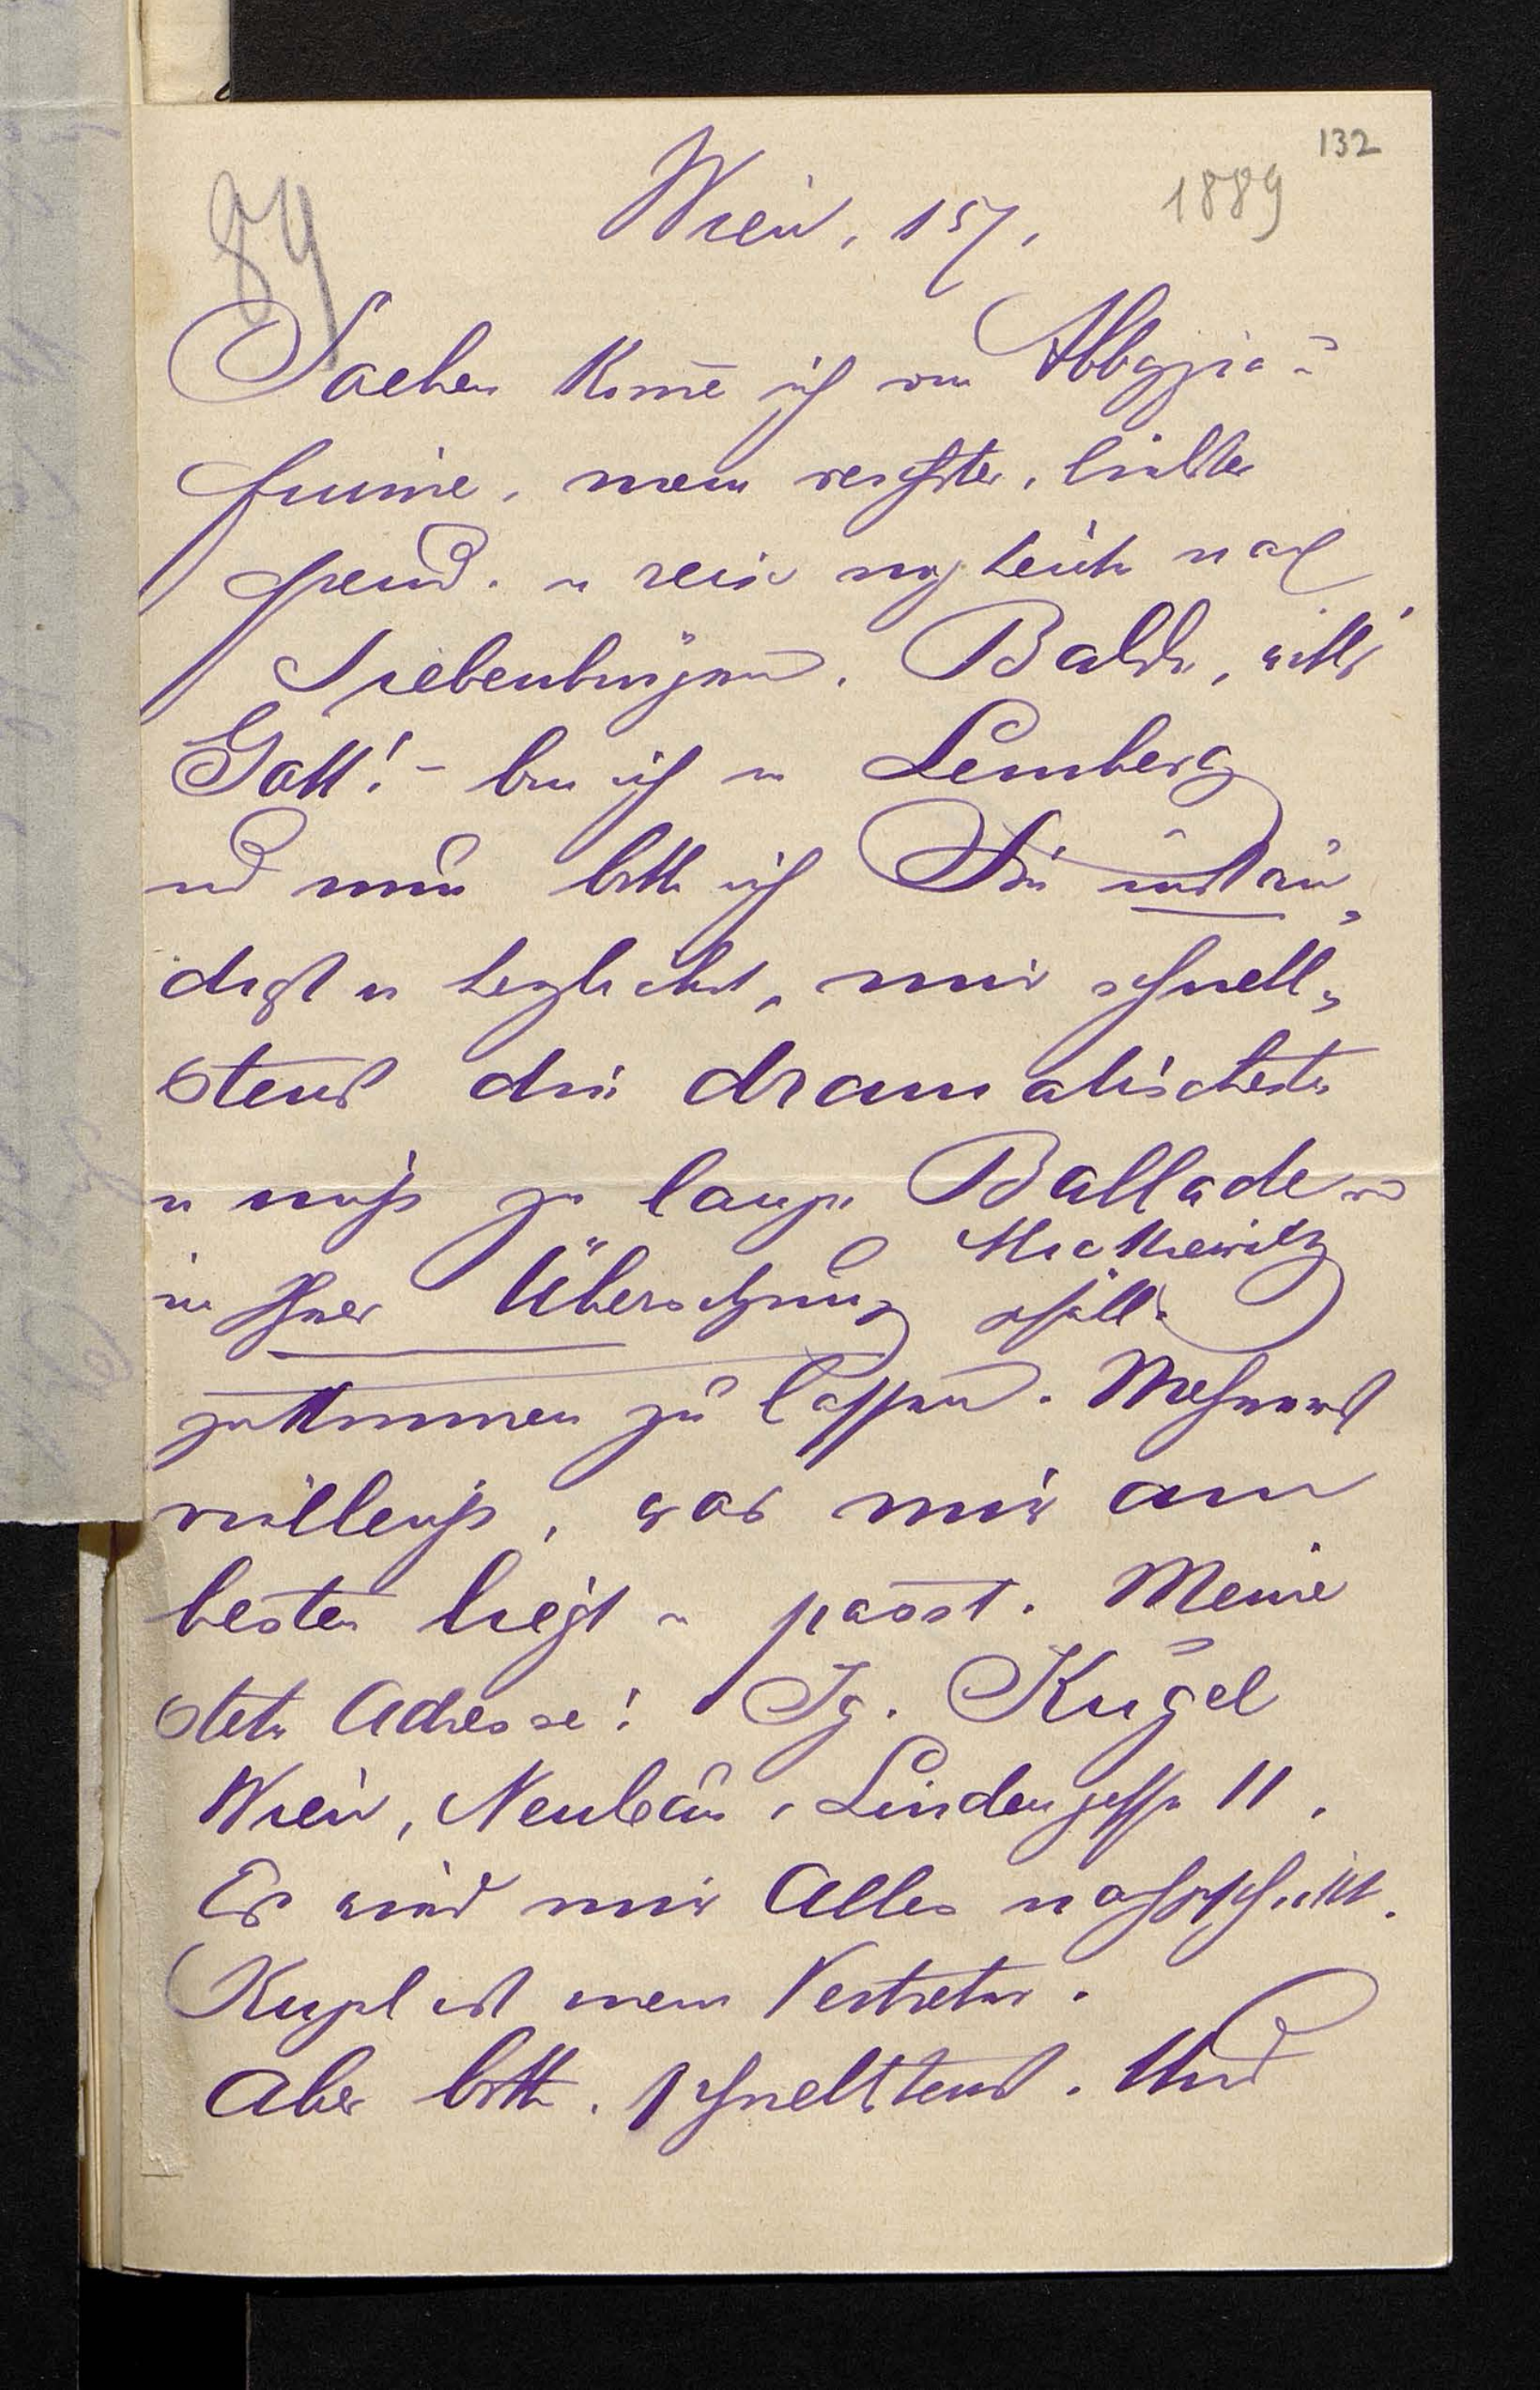 132
1889
89
Wien, 15/.
Soeben kom̄e ich von Abbazia-
Fiume, mein verehrter, liebster
Freund. u reise noch heute nach
Siebenbürgen. Balde, will's
Gott! - bin ich in Lemberg
und nun bitte ich Sie instän-
digst u herzlichst, mir schnell-
stens die dramatischesten
u nicht zu lange Balladen
Mickiewitz
in Ihrer Übersetzung
zukommen zu lassen.
was mir am
besten liegt u passt. Meine
stete Adresse: Ig. Kugel
Wien, Neubau, Lindengasse 11.
Es wird mir Alles nachgeschickt.
Kugel ist mein Vertreter.
Aber bitte. schnellstens. Und